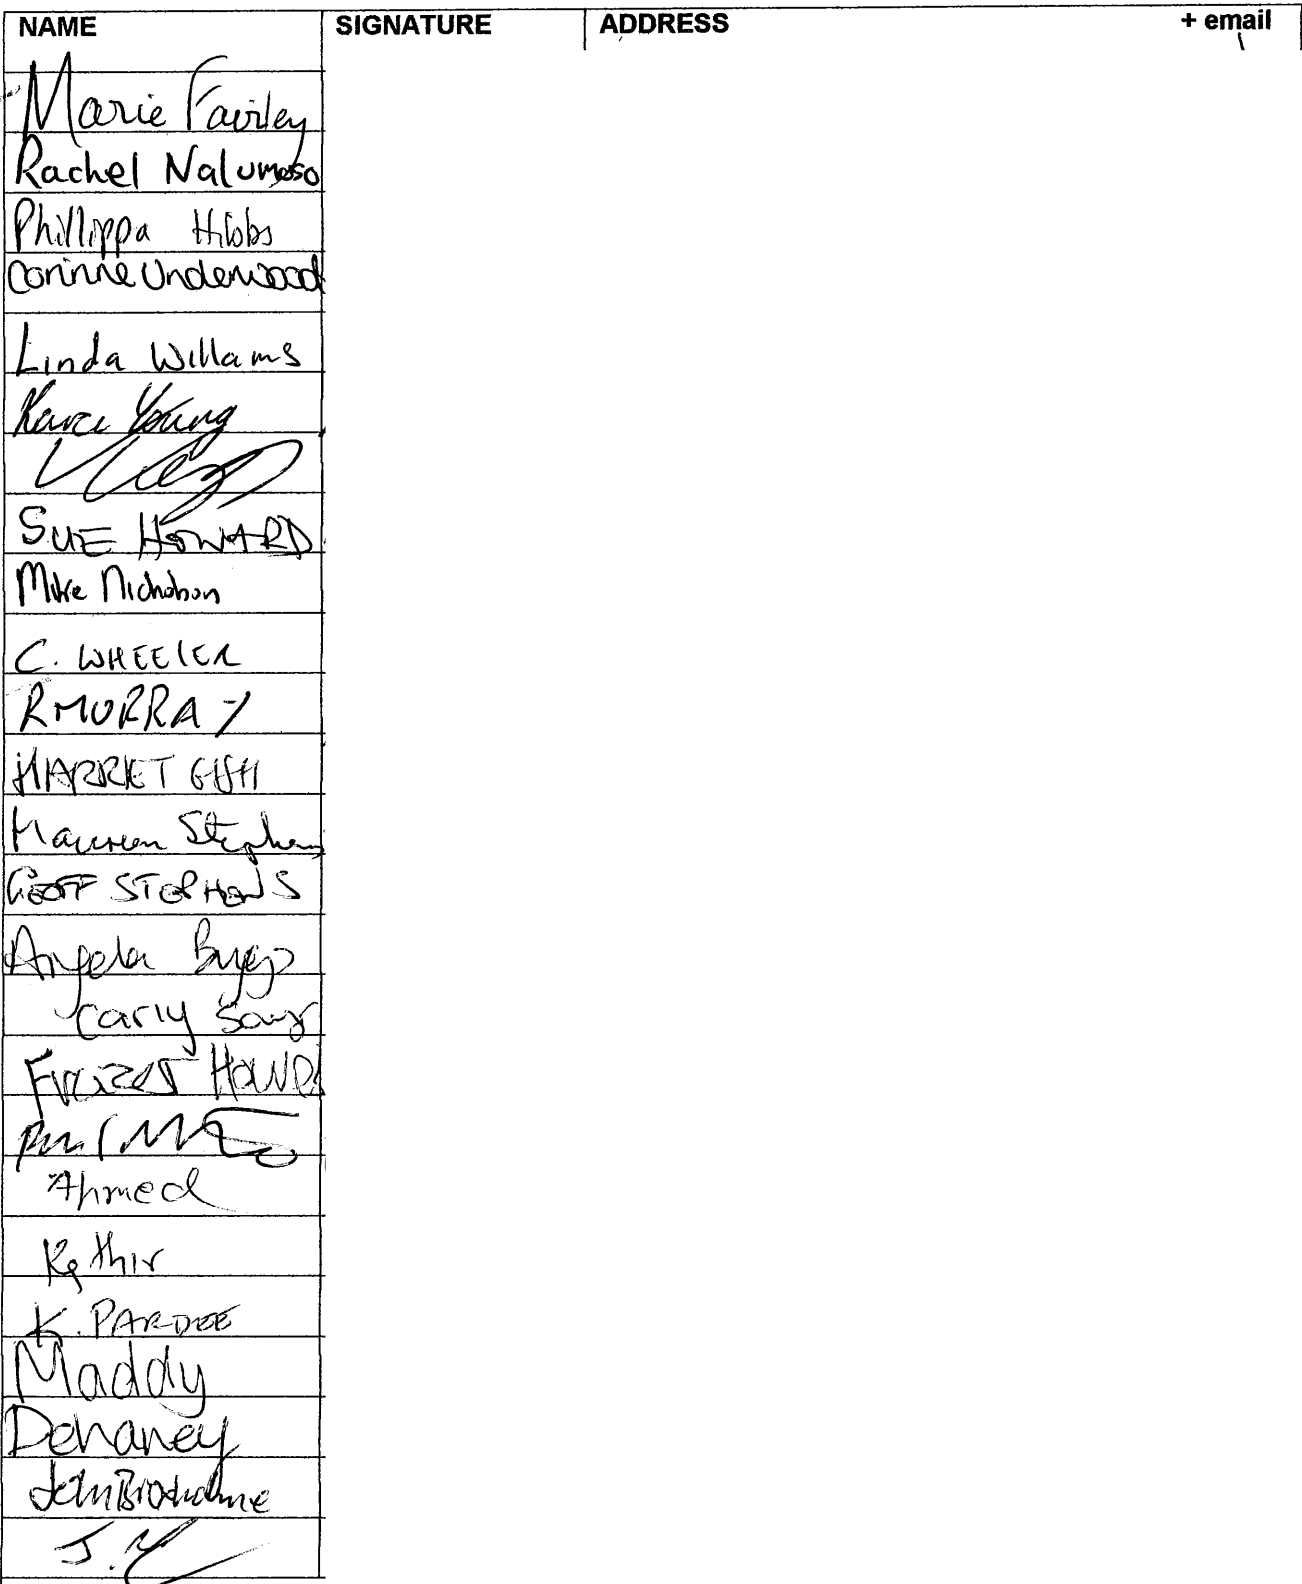 NAME SIGNATURE ADDRESS + email
Marie Fairley
Rachel Nalumoso
Phillippa Hibbs
Corinne Underwood
Linda Willams
Young
SUE HOWARD
Mike Nicholson
C. WHEELER
R MURRAY
HARRIET
Maureen Stephens
GEOFF STEPHENS
Angela
Carly
Ahmed
Kathir
K. PARDEE
Maddy
Dehaney
John Broxholme
J.